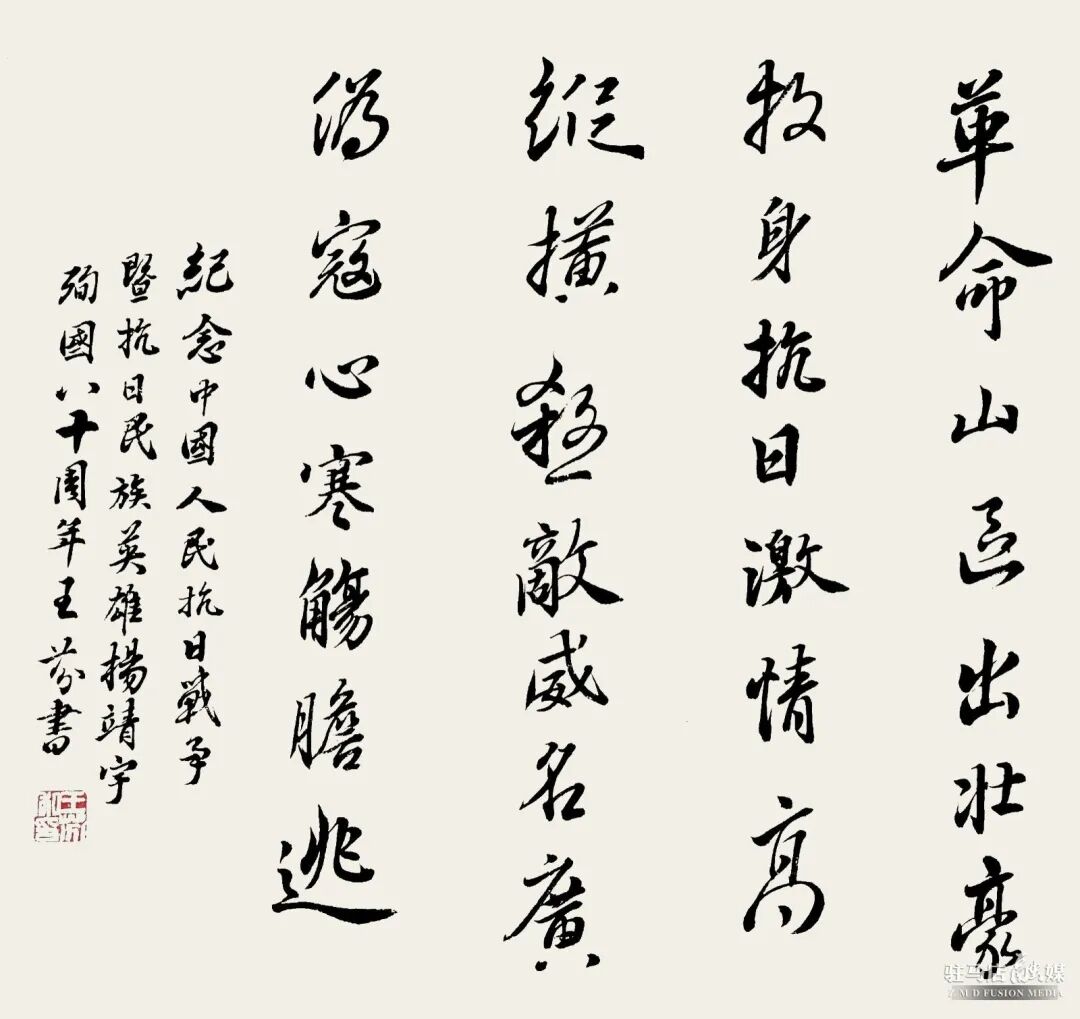 革命山区出壮豪
投身抗日激情高
縱橫殺敵威名廣
偽寇心寒觴膽逃
紀念中國人民抗日戰爭
暨抗日民族英雄楊靖宇
殉國八十周年王芬書
驻马店融媒
Z M D FUSION MEDIA